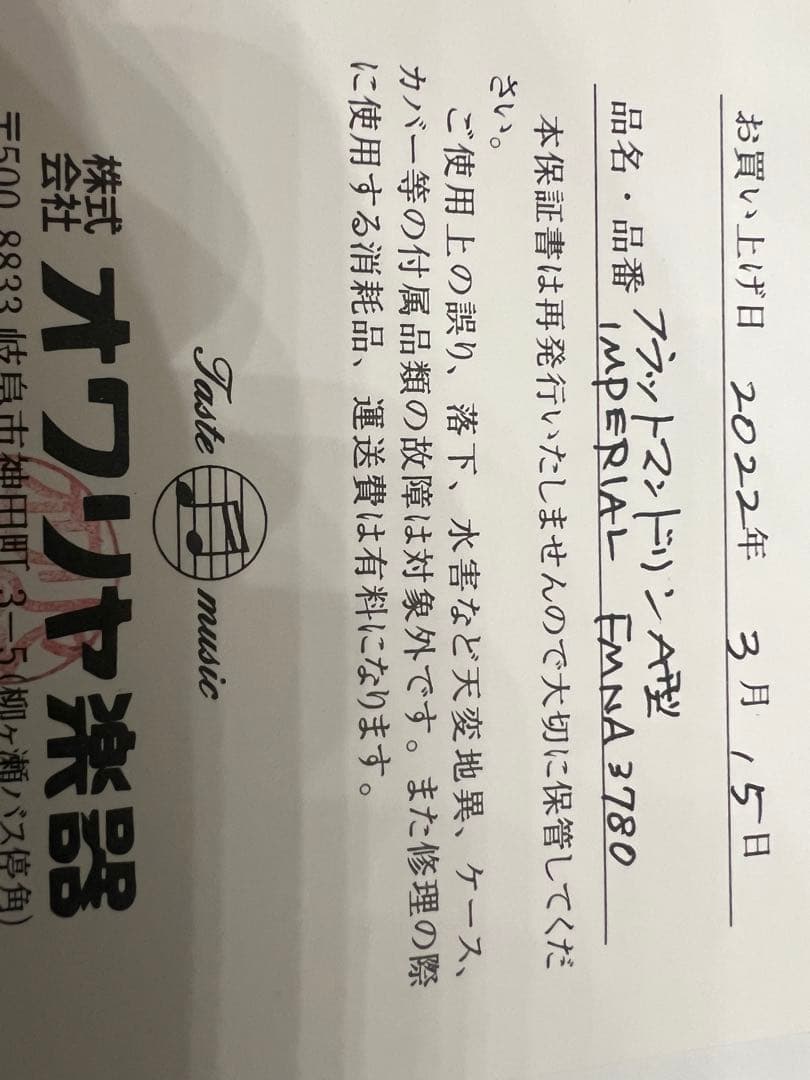 お買い上げ日 2022年 3月 15日
品名・品番 フラットマンドリン A型
IMPERIAL FMNA3780
本保証書は再発行いたしませんので大切に保管してくだ
さい。
ご使用上の誤り、落下、水害など天変地異、ケース、
カバー等の付属品類の故障は対象外です。また修理の際
に使用する消耗品、運送費は有料になります。
Taste music
株式会社 オワリヤ楽器
〒500-8833 岐阜市神田町 3-5(柳ヶ瀬バス停角)